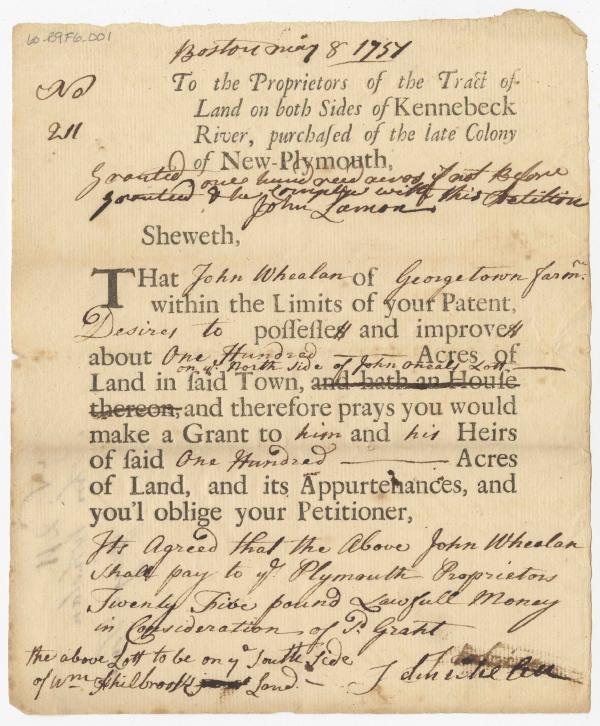 60-B9F6-001
Boston may 8 1757
No
211
To the Proprietors of the Tract of
Land on both Sides of Kennebeck
River, purchaſed of the late Colony
of New-Plymouth,
Granted one hundred acres if not Before
granted & he Complye with this Petition
John
Sheweth,
THat John Whealan of Georgetown farmr.
within the Limits of your Patent,
Desires to poſſeſſe and improve
about One Hundred Acres of
on ye North side of John oneals Lott
Land in ſaid Town, and hath an Houſe
thereon, and therefore prays you would
make a Grant to him and his Heirs
of ſaid One Hundred Acres
of Land, and its Appurtenances, and
you'l oblige your Petitioner,
Its Agreed that the Above John Whealan
shall pay to ye Plymouth Proprietors
Twenty Five pound Lawfull Money
in Consideration of Sd Grant
the above Lott to be on ye South Side
of Wm Philbrooks Land